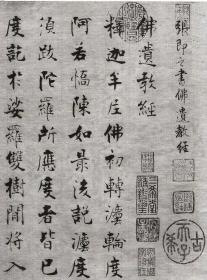 張即之書佛遺教經
佛遺教經
釋迦牟尼佛初轉法輪度
阿若憍陳如最後說法度
須跋陀羅所應度者皆已
度訖於娑羅雙樹間將入